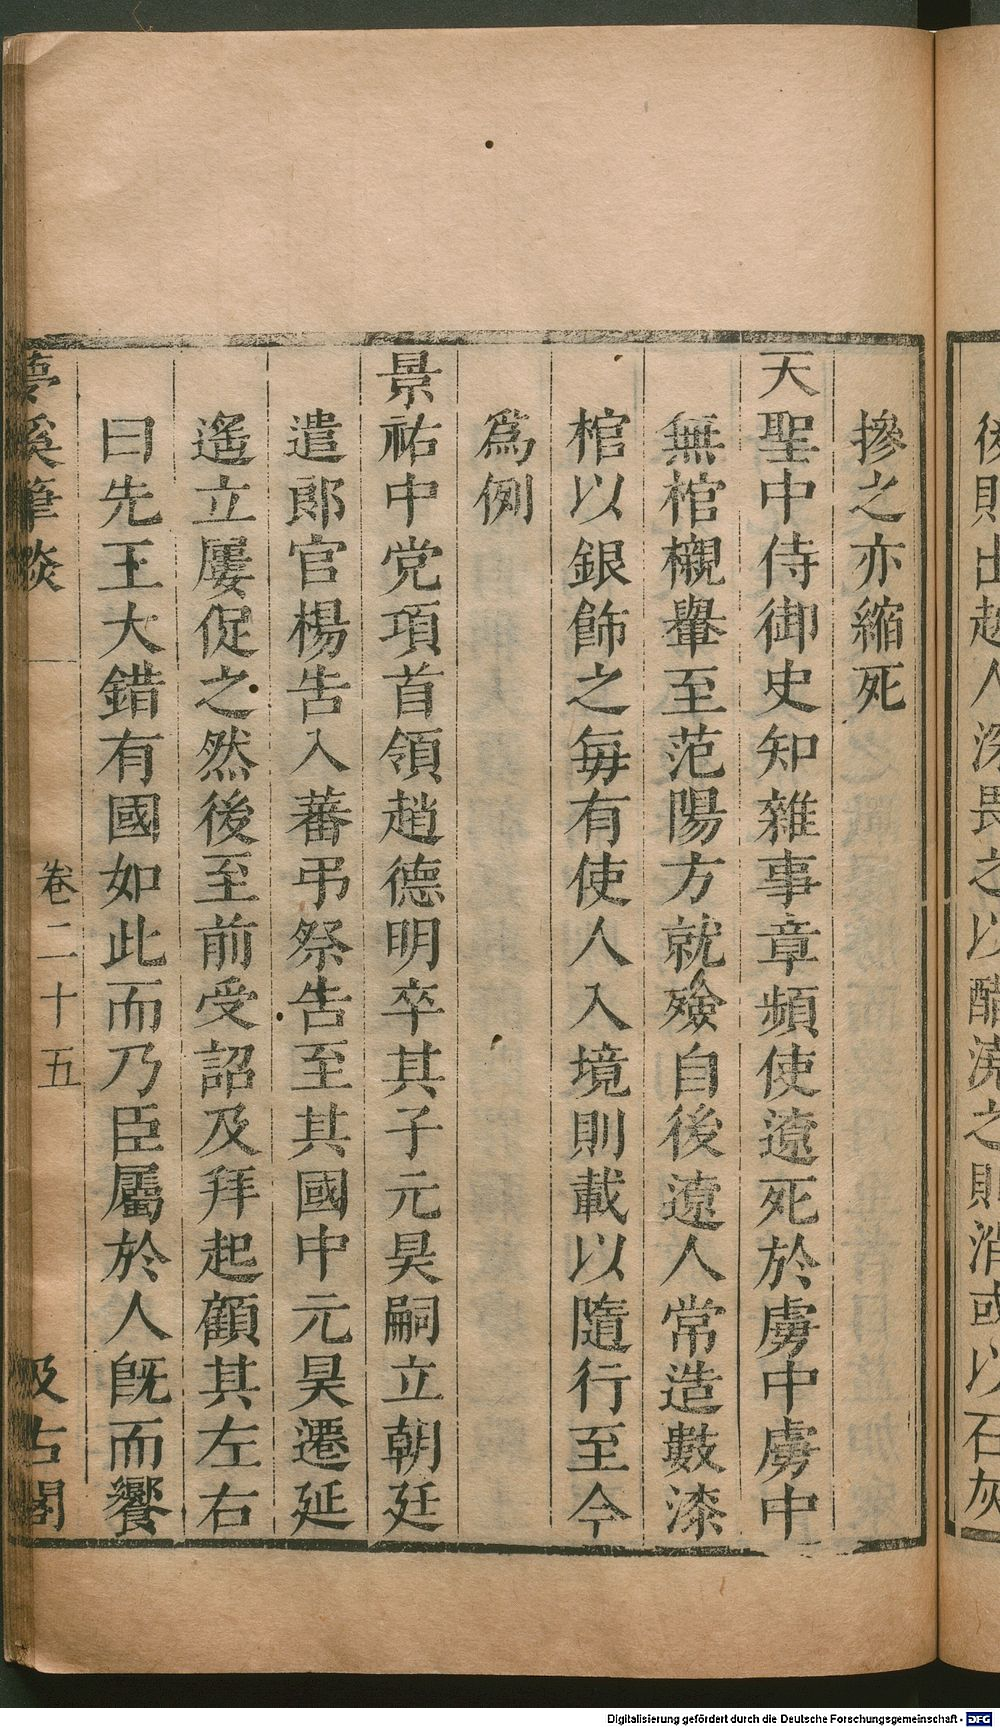 摻之亦縮死
天聖中侍御史知雜事章頻使遼死於虜中虜中
無棺櫬轝至范陽方就殮自後遼人常造數漆
棺以銀飾之每有使人入境則載以隨行至今
爲例
景祐中党項首領趙德明卒其子元昊嗣立朝廷
遣郎官楊告入蕃弔祭告至其國中元昊遷延
遙立屢促之然後至前受詔及拜起顧其左右
曰先王大錯有國如此而乃臣屬於人旣而饗
夢溪筆談
卷二十五
汲古閣
出越人深畏之以醋澆之則消或以石灰
Digitalisierung gefördert durch die Deutsche Forschungsgemeinschaft - DFG